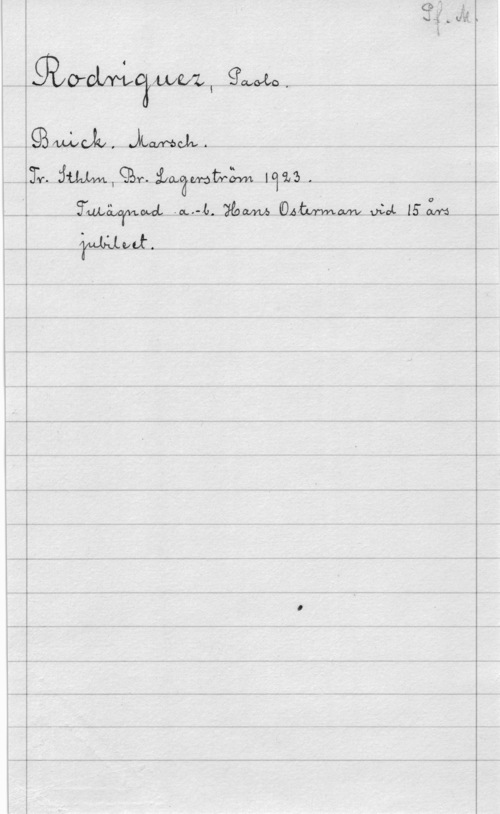 Pf. M.
Rodriguez, Paolo.
Buick. Marsch.
Tr. Sthlm, Br. Lagerström 1923.
Tillägnad a.-b. Hans Osterman vid 15 års
jubileet.